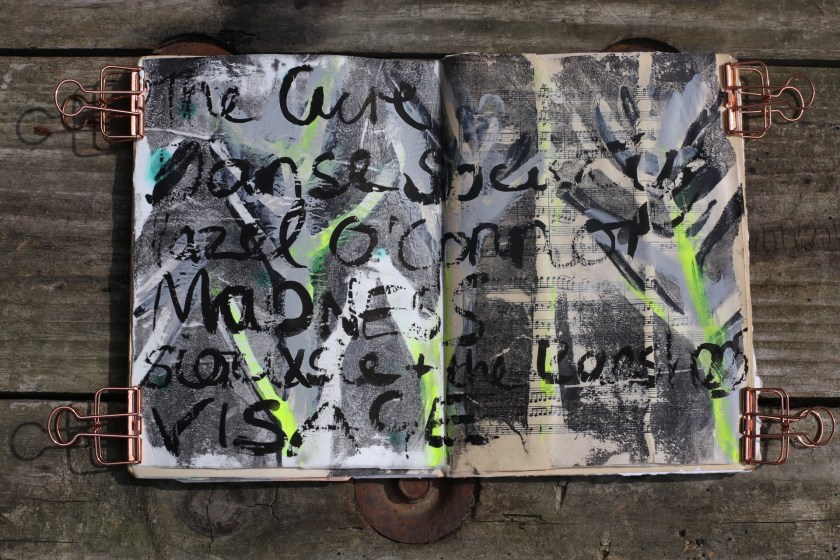 The Cure
Danse Society
Hazel O'Connor
MADNESS
Siouxsie + the Banshees
VISAGE